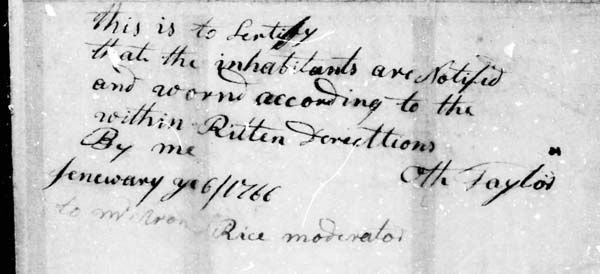 This is to Sertify
that the inhabitants are Notifid
and wornd according to the
within Ritten Derecttions
By me
Oth Taylor
Jenewary ye 6/1766
to mr Aron Rice moderator